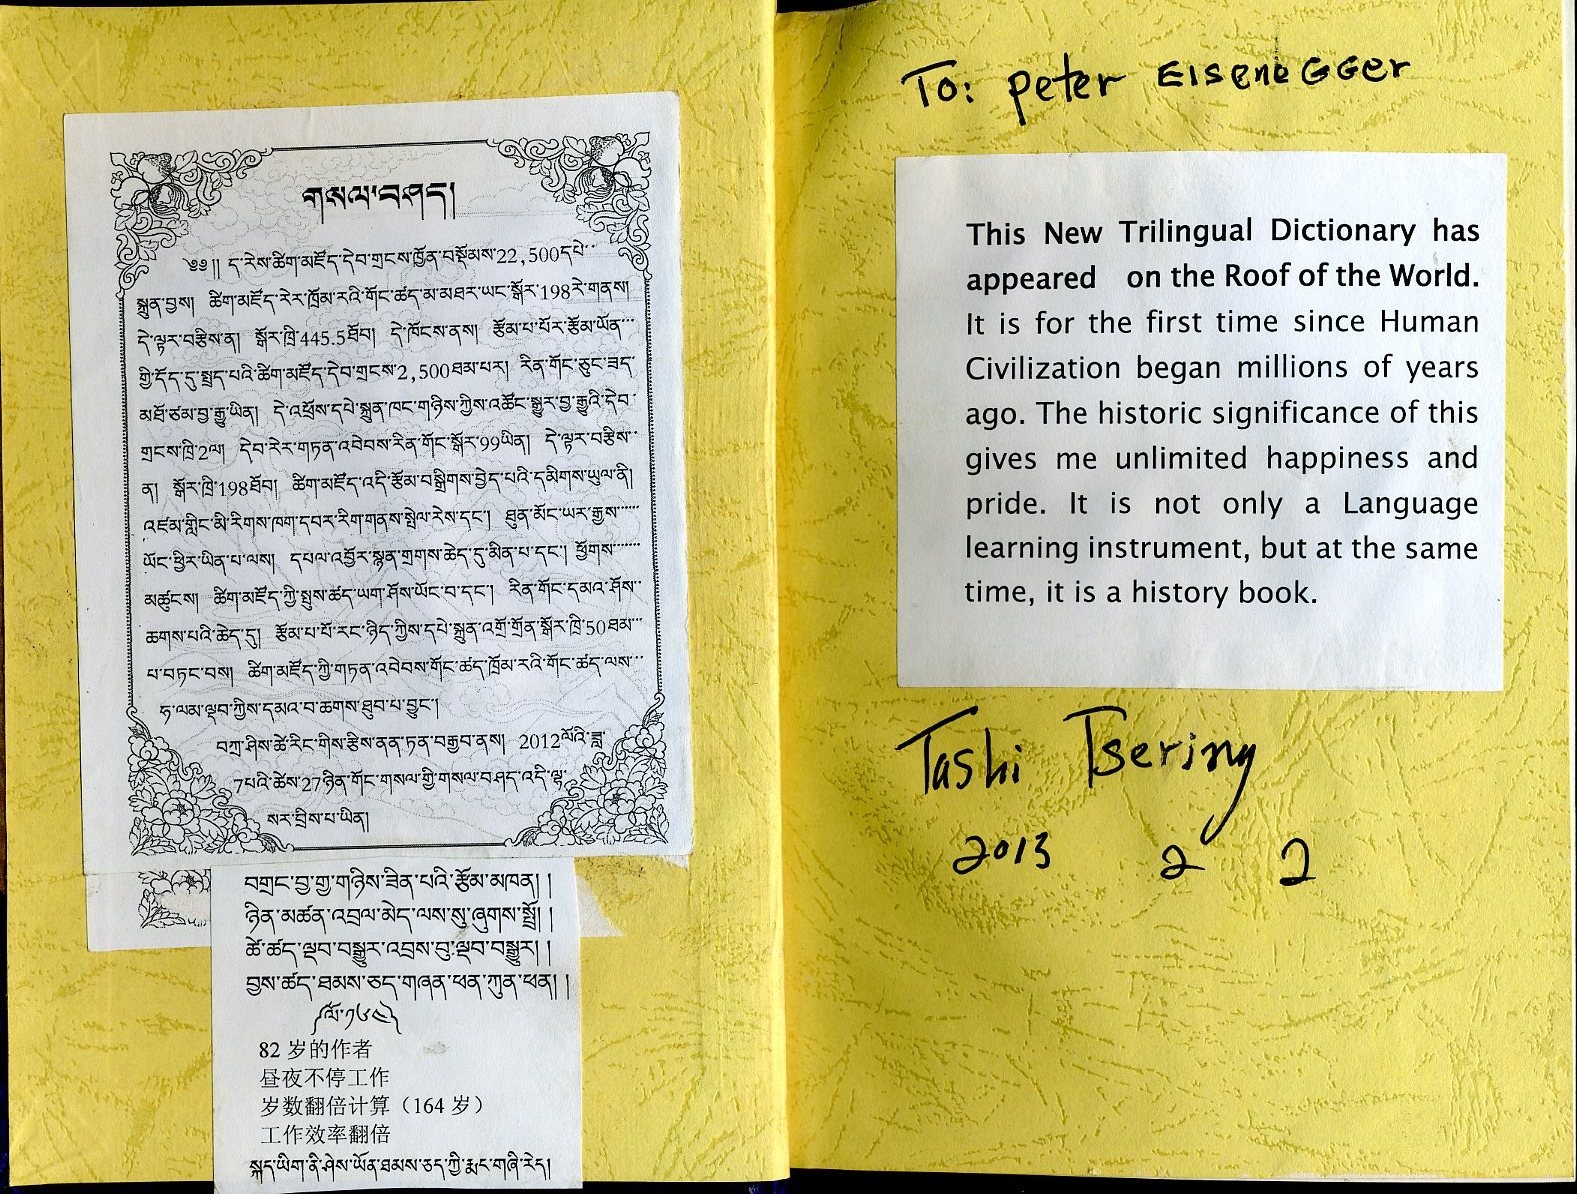 གསལ་བཤད།
༄༅།། ད་རེས་ཚིག་མཛོད་དེབ་གྲངས་ཁྱོན་བསྡོམས་22,500དཔེ་
སྐྲུན་བྱས། ཚིག་མཛོད་རེར་ཁྲོམ་རའི་གོང་ཚད་མ་མཐར་ཡང་སྒོར་198རེ་གནས།
དེ་ལྟར་བརྩིས་ན། སྒོར་ཁྲི་445.5ཐོབ། དེ་ཁོངས་ནས། རྩོམ་པ་པོར་རྩོམ་ཡོན་
གྱི་དོད་དུ་སྤྲད་པའི་ཚིག་མཛོད་དེབ་གྲངས་2,500ཐམ་པར། རིན་གོང་ཅུང་ཟད་
མཐོ་ཙམ་བྱ་རྒྱུ་ཡིན། དེ་འཕྲོས་དཔེ་སྐྲུན་ཁང་གཉིས་ཀྱིས་འཚོང་སྒྱུར་བྱ་རྒྱུའི་དེབ་
གྲངས་ཁྲི་2ལ། དེབ་རེར་གཏན་འབེབས་རིན་གོང་སྒོར་99ཡིན། དེ་ལྟར་བརྩིས་
ན། སྒོར་ཁྲི་198ཐོབ། ཚིག་མཛོད་འདི་རྩོམ་བསྒྲིགས་བྱེད་པའི་དམིགས་ཡུལ་ནི།
འཛམ་གླིང་མི་རིགས་ཁག་དབར་རིག་གནས་སྤེལ་རེས་དང་། ཐུན་མོང་ཡར་རྒྱས་
ཡོང་ཕྱིར་ཡིན་པ་ལས། དཔལ་འབྱོར་སྙན་གྲགས་ཆེད་དུ་མིན་པ་དང་། ཕྱོགས་
མཚུངས། ཚིག་མཛོད་ཀྱི་སྤུས་ཚད་ཡག་ཤོས་ཡོང་བ་དང་། རིན་གོང་དམའ་ཤོས་
ཆགས་པའི་ཆེད་དུ། རྩོམ་པ་པོ་རང་ཉིད་ཀྱིས་དཔེ་སྐྲུན་འགྲོ་གྲོན་སྒོར་ཁྲི་50ཐམ་
པ་བཏང་བས། ཚིག་མཛོད་ཀྱི་གཏན་འབེབས་གོང་ཚད་ཁྲོམ་རའི་གོང་ཚད་ལས་
ཧ་ལམ་ལྡབ་ཀྱིས་དམའ་བ་ཆགས་ཐུབ་པ་བྱུང་།
བཀྲ་ཤིས་ཚེ་རིང་གིས་རྩིས་ནན་ཏན་བརྒྱབ་ནས། 2012ལོའི་ཟླ་
7པའི་ཚེས་27ཉིན་གོང་གསལ་གྱི་གསལ་བཤད་འདི་ལྟ་
སར་བྲིས་པ་ཡིན།
བགྲང་བྱ་གྱ་གཉིས་ཟིན་པའི་རྩོམ་མཁན། །
ཉིན་མཚན་འབྲལ་མེད་ལས་སུ་ཞུགས་སྤྲོ། །
ཚེ་ཚད་ལྡབ་བསྒྱུར་འབྲས་བུ་ལྡབ་བསྒྱུར། །
བྱས་ཚད་ཐམས་ཅད་གཞན་ཕན་ཀུན་ཕན། །
(ལོ་༡༦༤)
82 岁的作者
昼夜不停工作
岁数翻倍计算（164 岁）
工作效率翻倍
སྐད་ཡིག་ནི་ཤེས་ཡོན་ཐམས་ཅད་ཀྱི་རྨང་གཞི་རེད།
To: Peter EISENEGGER
This New Trilingual Dictionary has
appeared on the Roof of the World.
It is for the first time since Human
Civilization began millions of years
ago. The historic significance of this
gives me unlimited happiness and
pride. It is not only a Language
learning instrument, but at the same
time, it is a history book.
Tashi Tsering
2013 2 2